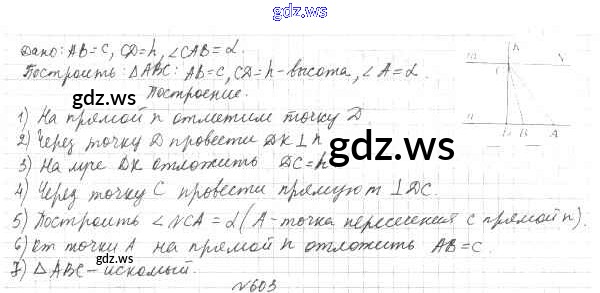 gdz.ws
Дано: AB=c, CD=h, ∠CAB=α.
Построить: △ABC: AB=c, CD=h-высота, ∠A=α.
Построение.
gdz.ws
gdz.ws
1) На прямой n отметим точку D.
2) Через точку D провести DK⊥n
3) На луче DK отложить DC=h
gdz.ws
4) Через точку C провести прямую m⊥DC.
5) Построить ∠NCA=α (A-точка пересечения с прямой n).
6) От точки A на прямой n отложить AB=c.
7) △ABC-искомый.
№603
gdz.ws
gdz.ws
K
m
N
C
n
D B A